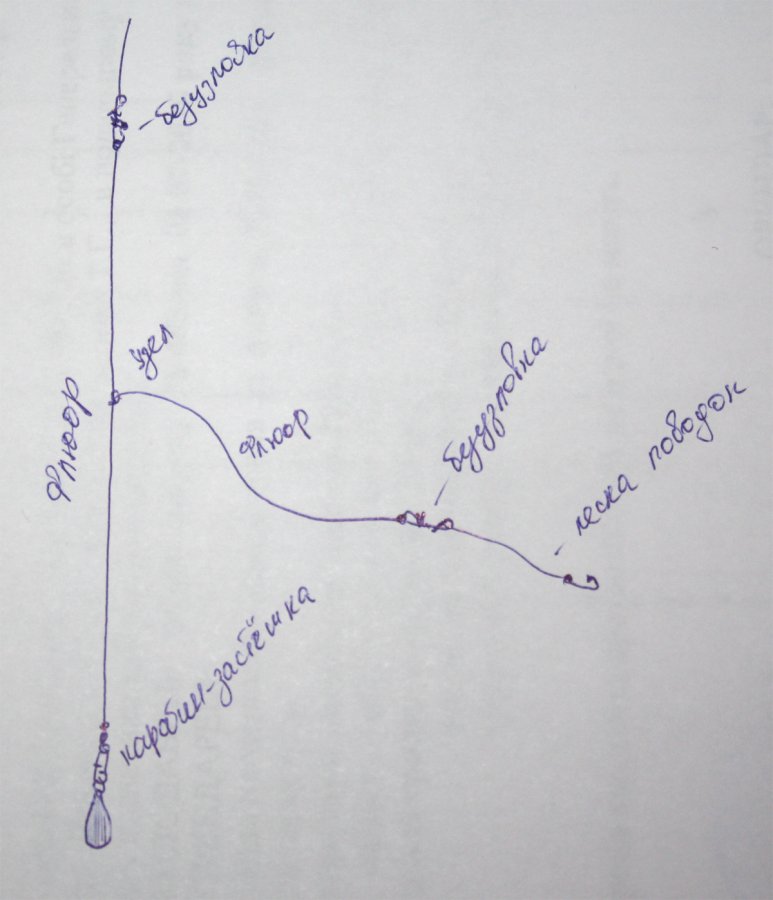 безузловка
узел
Флюор
Флюор
безузловка
леска поводок
карабин-застёжка